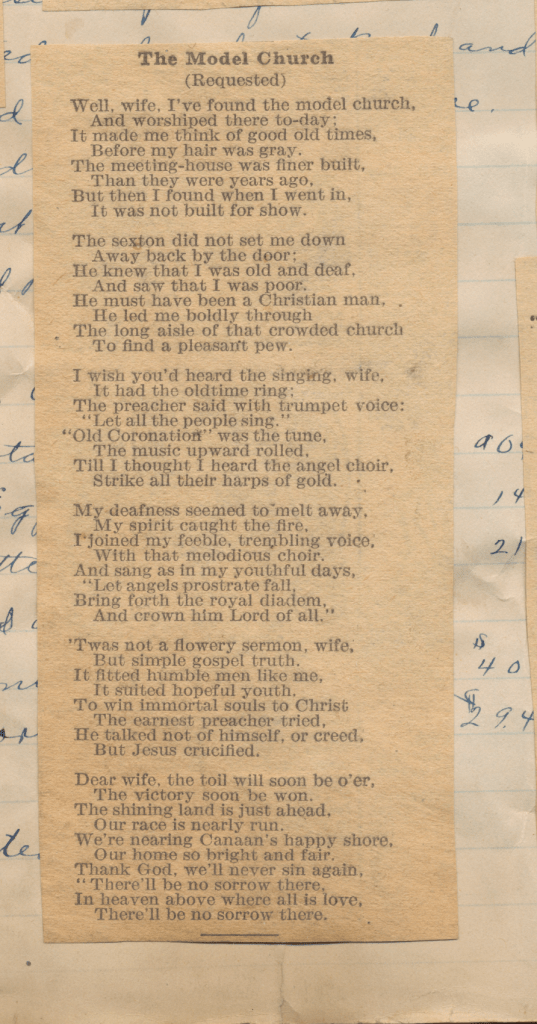 The Model Church
(Requested)
Well, wife, I've found the model church,
And worshiped there to-day;
It made me think of good old times,
Before my hair was gray.
The meeting-house was finer built,
Than they were years ago,
But then I found when I went in,
It was not built for show.
The sexton did not set me down
Away back by the door;
He knew that I was old and deaf,
And saw that I was poor.
He must have been a Christian man,
He led me boldly through
The long aisle of that crowded church
To find a pleasant pew.
I wish you'd heard the singing, wife,
It had the oldtime ring;
The preacher said with trumpet voice:
"Let all the people sing."
"Old Coronation" was the tune,
The music upward rolled,
Till I thought I heard the angel choir,
Strike all their harps of gold.
My deafness seemed to melt away,
My spirit caught the fire,
I joined my feeble, trembling voice,
With that melodious choir.
And sang as in my youthful days,
"Let angels prostrate fall,
Bring forth the royal diadem,
And crown him Lord of all."
'Twas not a flowery sermon, wife,
But simple gospel truth.
It fitted humble men like me,
It suited hopeful youth.
To win immortal souls to Christ
The earnest preacher tried,
He talked not of himself, or creed,
But Jesus crucified.
Dear wife, the toil will soon be o'er,
The victory soon be won.
The shining land is just ahead,
Our race is nearly run.
We're nearing Canaan's happy shore,
Our home so bright and fair.
Thank God, we'll never sin again,
"There'll be no sorrow there,
In heaven above where all is love,
There'll be no sorrow there.
and
14
21
$
40
$
294